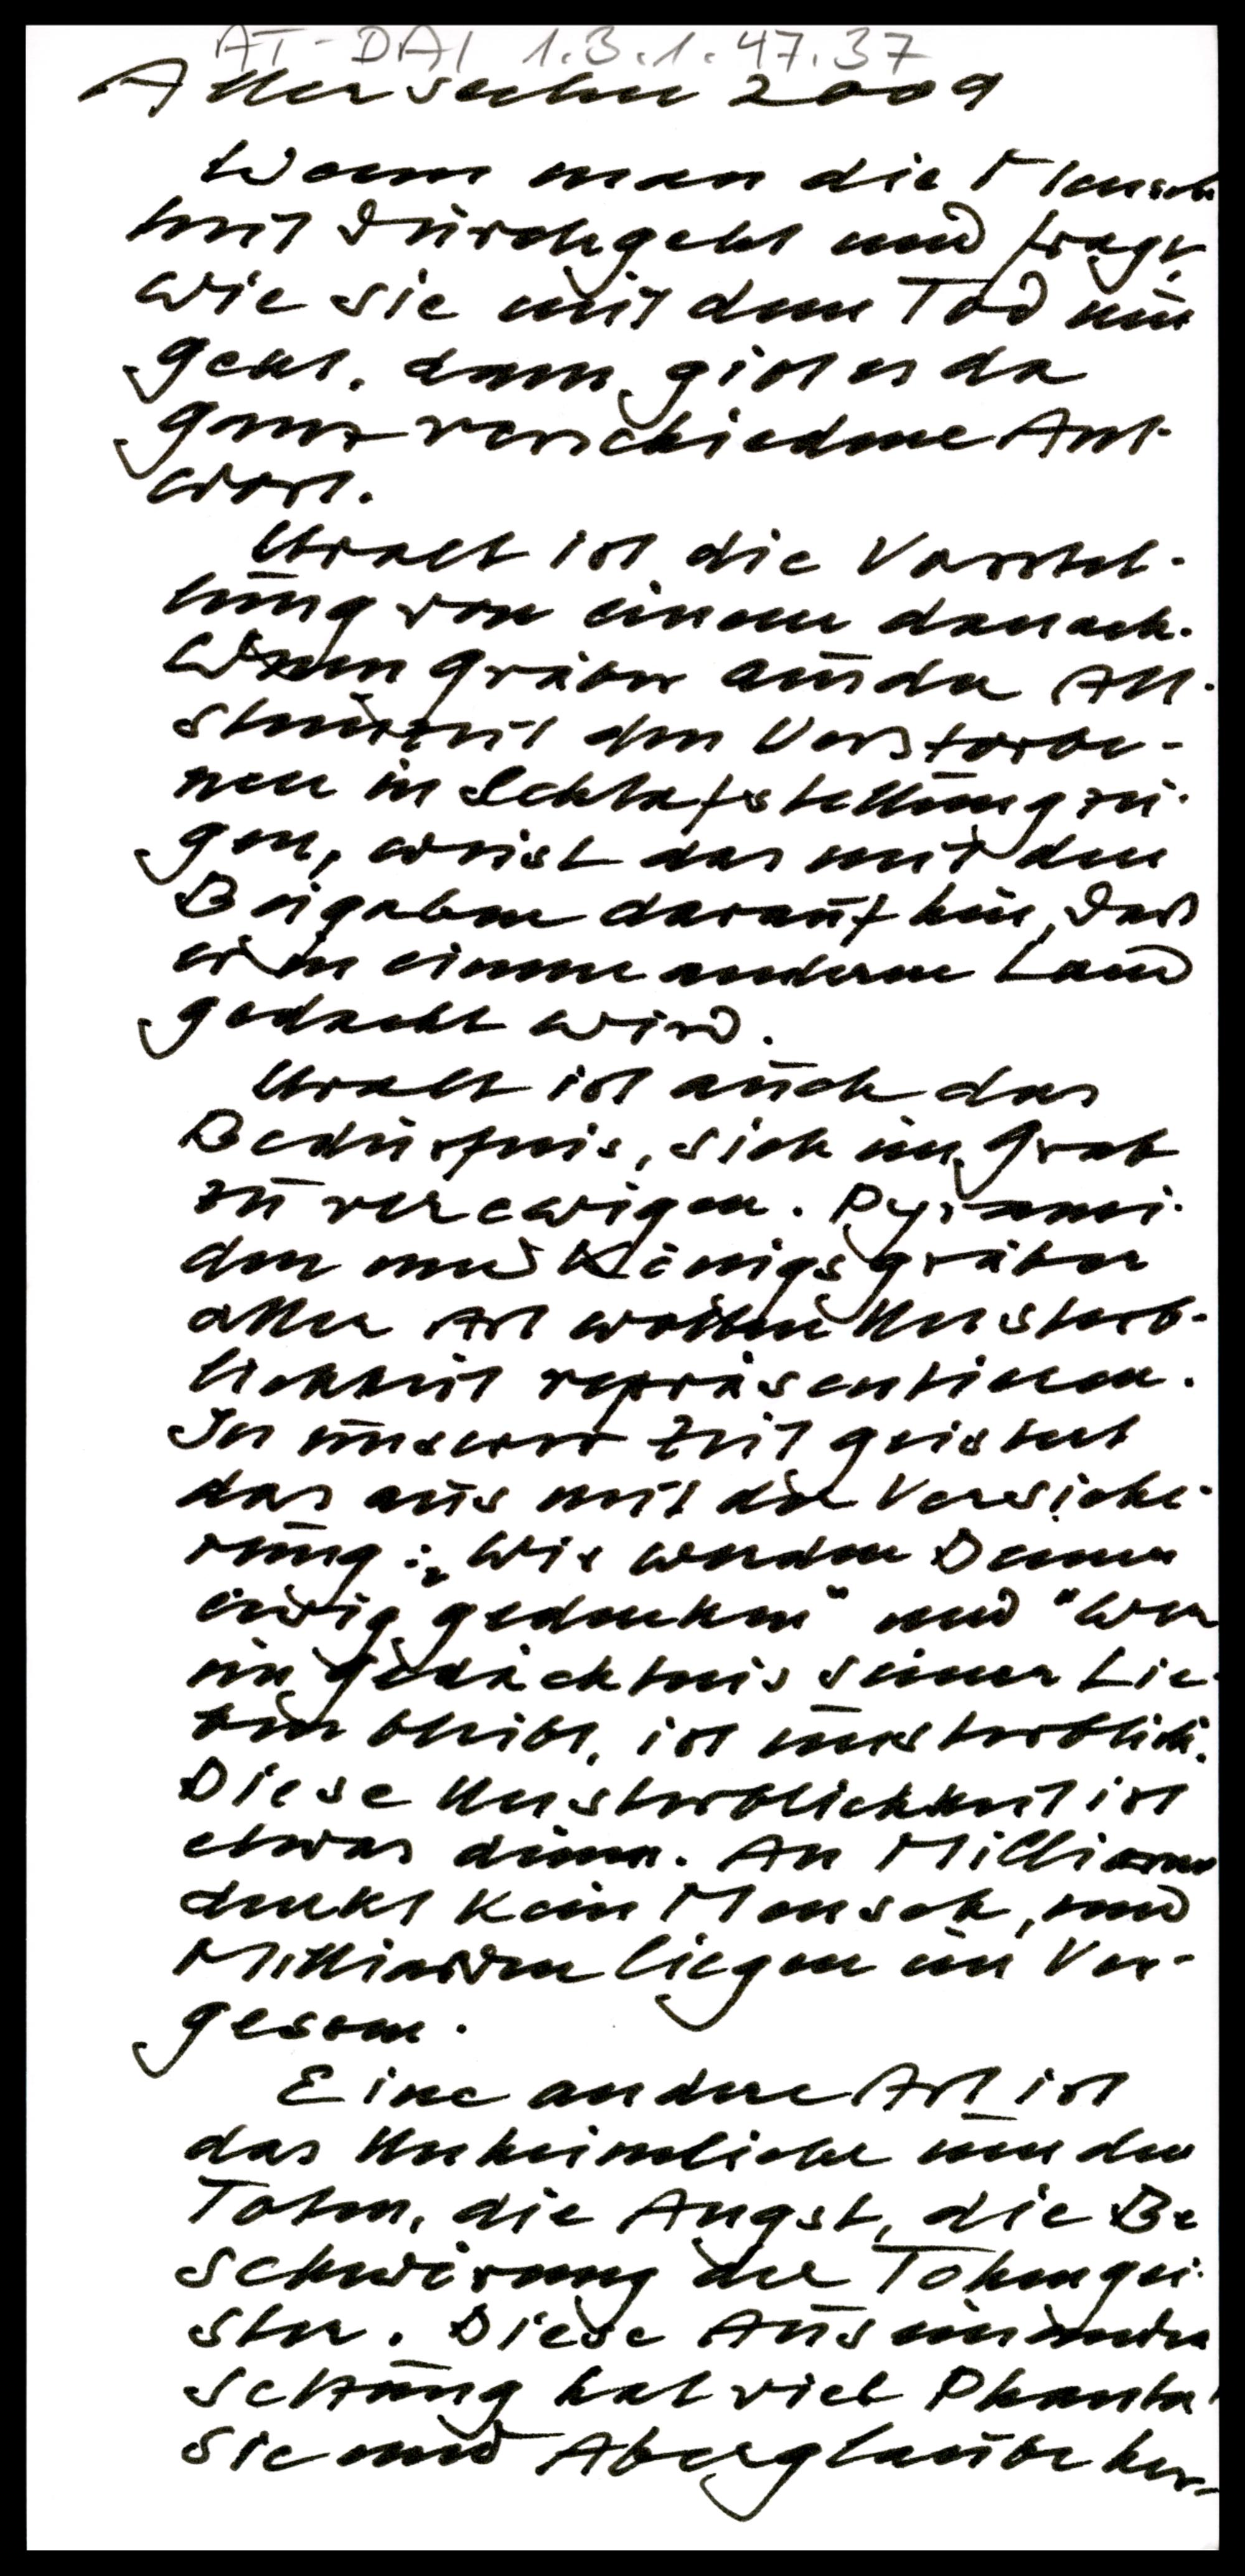 AT-DAI 1.3.1.47.37
Allerseelen 2009
Wenn man die Mensch
heit durchgeht und fragt,
wie sie mit dem Tod um
geht, dann gibt es da
ganz verschiedene Ant-
wort.
Uralt ist die Vorstel-
lung von einem danach.
Wenn Gräber aus der Alt-
steinzeit den Verstorbe-
nen in Schlafstellung zei-
gen, weist das mit den
Beigaben darauf hin, dass
er in einem anderen Land
gedacht wird.
Uralt ist auch das
Bedürfnis, sich im Grab
zu verewigen. Pyrami-
den und Königsgräber
aller Art wollen Unsterb-
lichkeit repräsentieren.
In unserer Zeit geistert
das aus mit der Versiche-
rung: „Wir werden Deiner
ewig gedenken" und "Wer
im Gedächtnis seiner Lie-
ben bleibt, ist unsterblich.
Diese Unsterblichkeit ist
etwas dünn. An Millionen
denkt kein Mensch, und
Milliarden liegen im Ver-
gessen.
Eine andere Art ist
das Unheimliche um den
Toten, die Angst, die Be
schwörung der Totengei-
ster. Diese Auseinander
setzung hat viel Phanta-
sie und Aberglaube her-